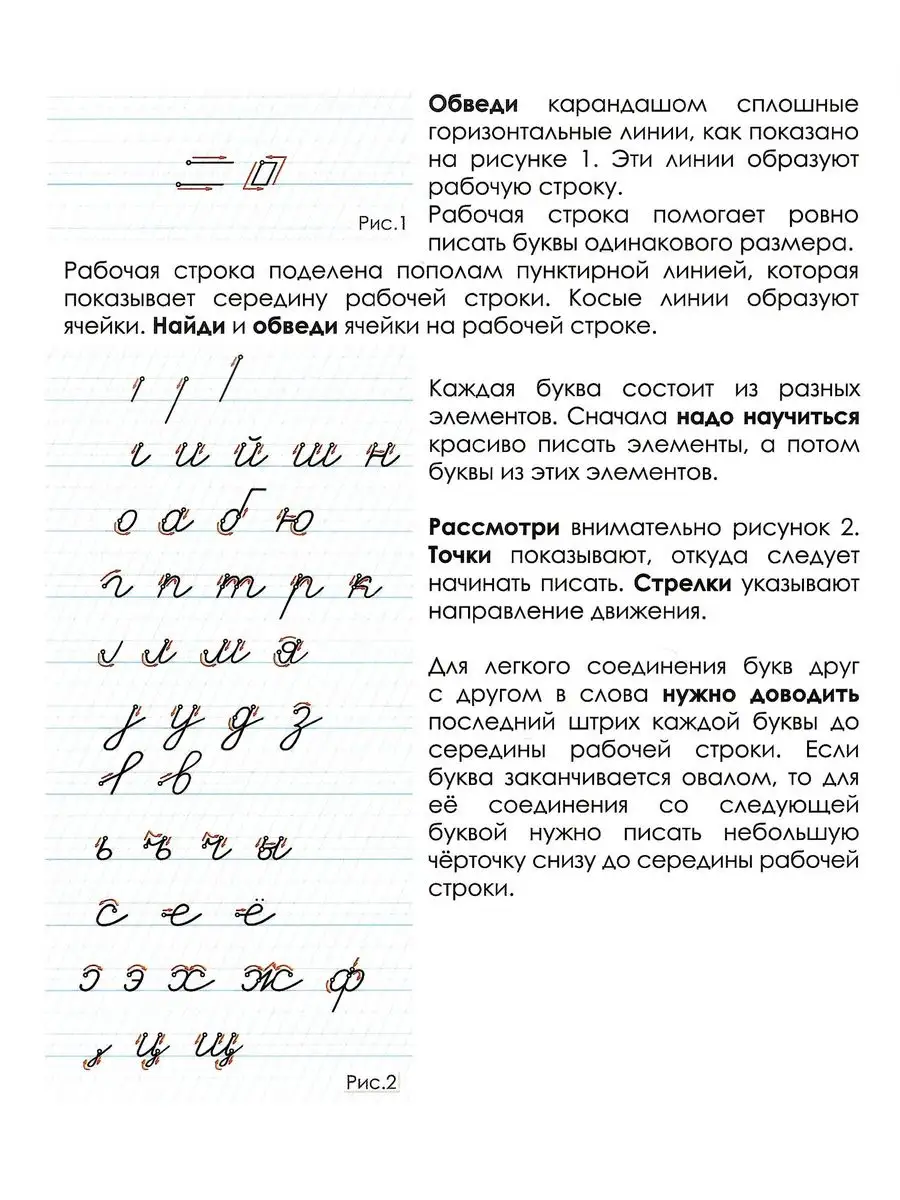 Обведи карандашом сплошные
горизонтальные линии, как показано
на рисунке 1. Эти линии образуют
рабочую строку.
Рис.1
Рабочая строка помогает ровно
писать буквы одинакового размера.
Рабочая строка поделена пополам пунктирной линией, которая
показывает середину рабочей строки. Косые линии образуют
ячейки. Найди и обведи ячейки на рабочей строке.
Каждая буква состоит из разных
элементов. Сначала надо научиться
красиво писать элементы, а потом
буквы из этих элементов.
Рассмотри внимательно рисунок 2.
Точки показывают, откуда следует
начинать писать. Стрелки указывают
направление движения.
Для легкого соединения букв друг
с другом в слова нужно доводить
последний штрих каждой буквы до
середины рабочей строки. Если
буква заканчивается овалом, то для
её соединения со следующей
буквой нужно писать небольшую
чёрточку снизу до середины рабочей
строки.
и й ш н
о а б ю
г п т р к
л м я
у д з
в
ь ъ ч ы
с е ё
э х ж ф
ц щ
Рис.2